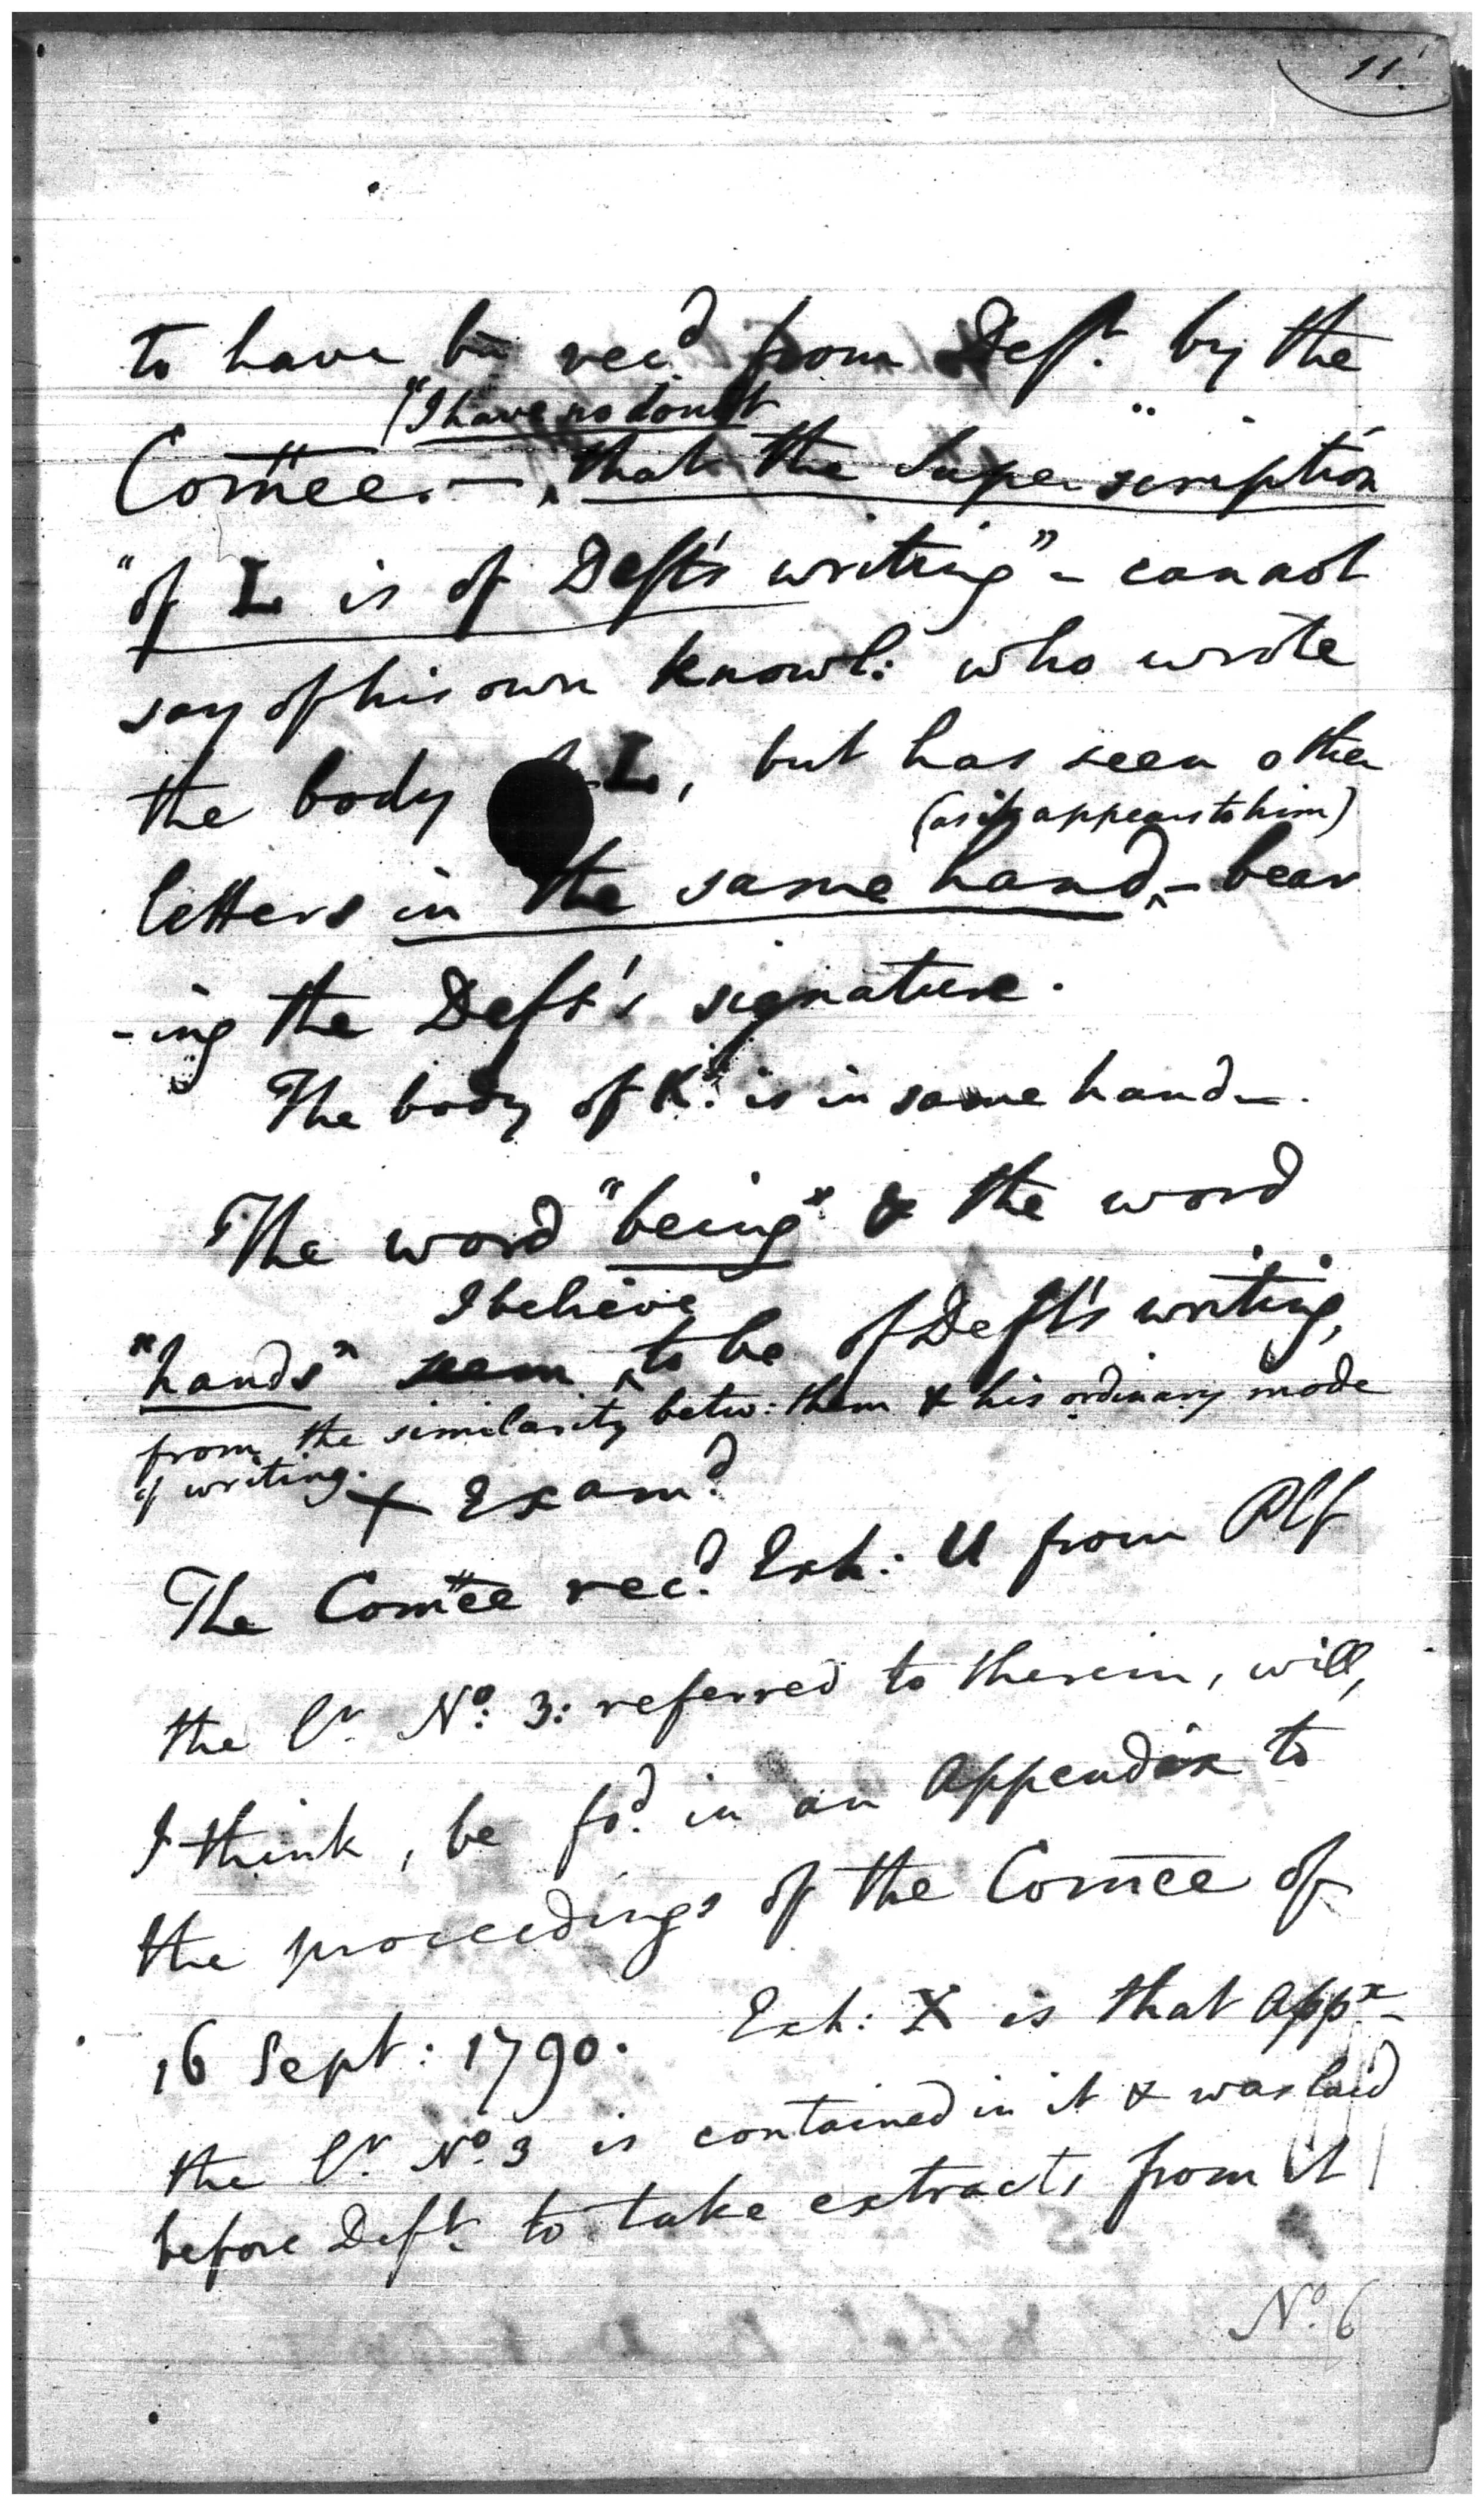 11
to have bn rec.d from Deft. by the
"I have no doubt
Com̄ee. — ^ that the Superscription
"of L is of Deft's writing" - cannot
say of his own knowl: who wrote
the body L, but has seen other
(as it appears to him)
letters in the same hand ^ - bear
-ing the Deft's signature.
The body of K. is in same hand -.
The word "being" & the word
I believe
"hands" seem ^ to be of Deft's writing,
from the similarity betw: them & his ordinary mode
of writing.
X Exam.d
The Com̄ee rec.d Exh: U from Plf
the Vr. No: 3: referred to therein, will,
I think, be fo.d in an Appendix to
the proceedings of the Com̄ee of
16 Sept: 1790. Exh: X is that Appx -
the Vr. No. 3 is contained in it & was laid
before Deft. to take extracts from it
No. 6